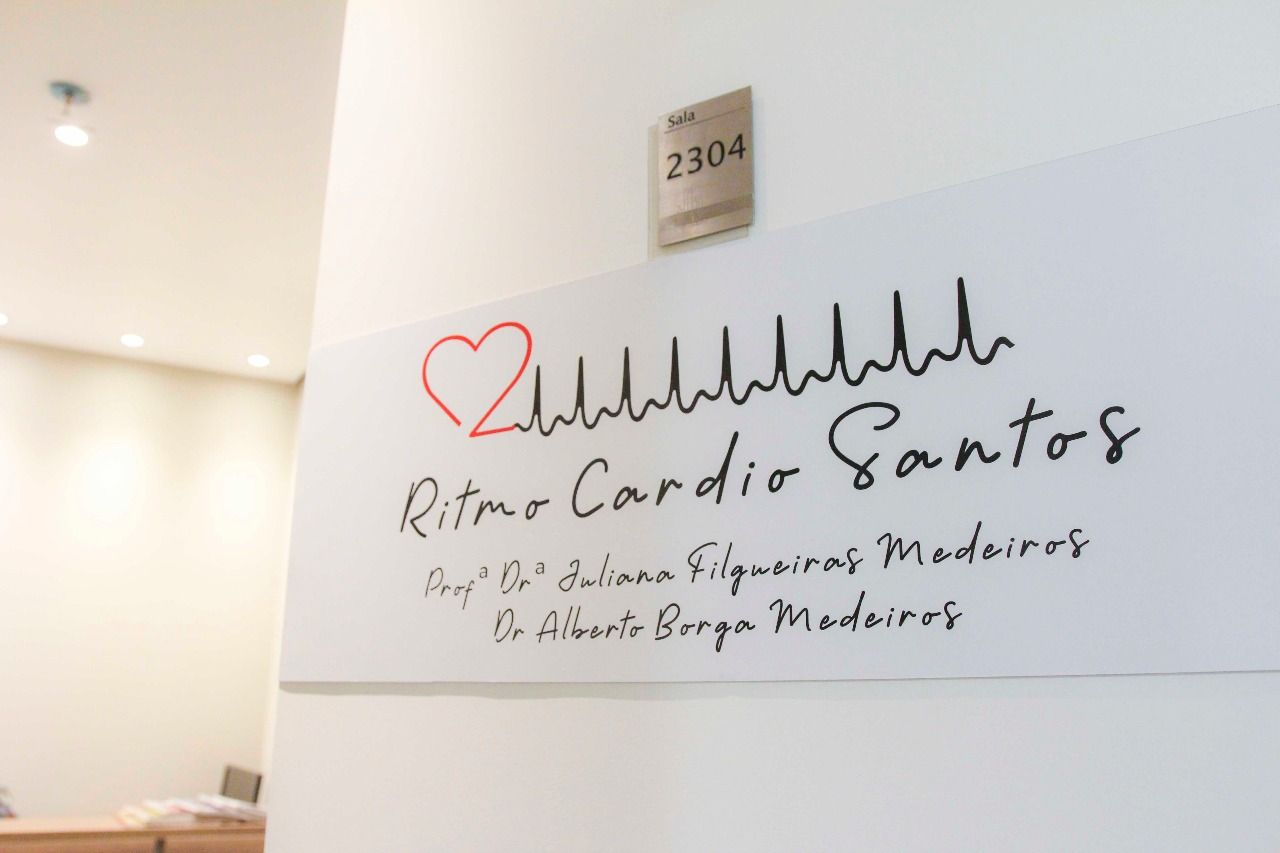 Sala
2304
Ritmo Cardio Santos
Profª Drª Juliana Filgueiras Medeiros
Dr Alberto Borga Medeiros